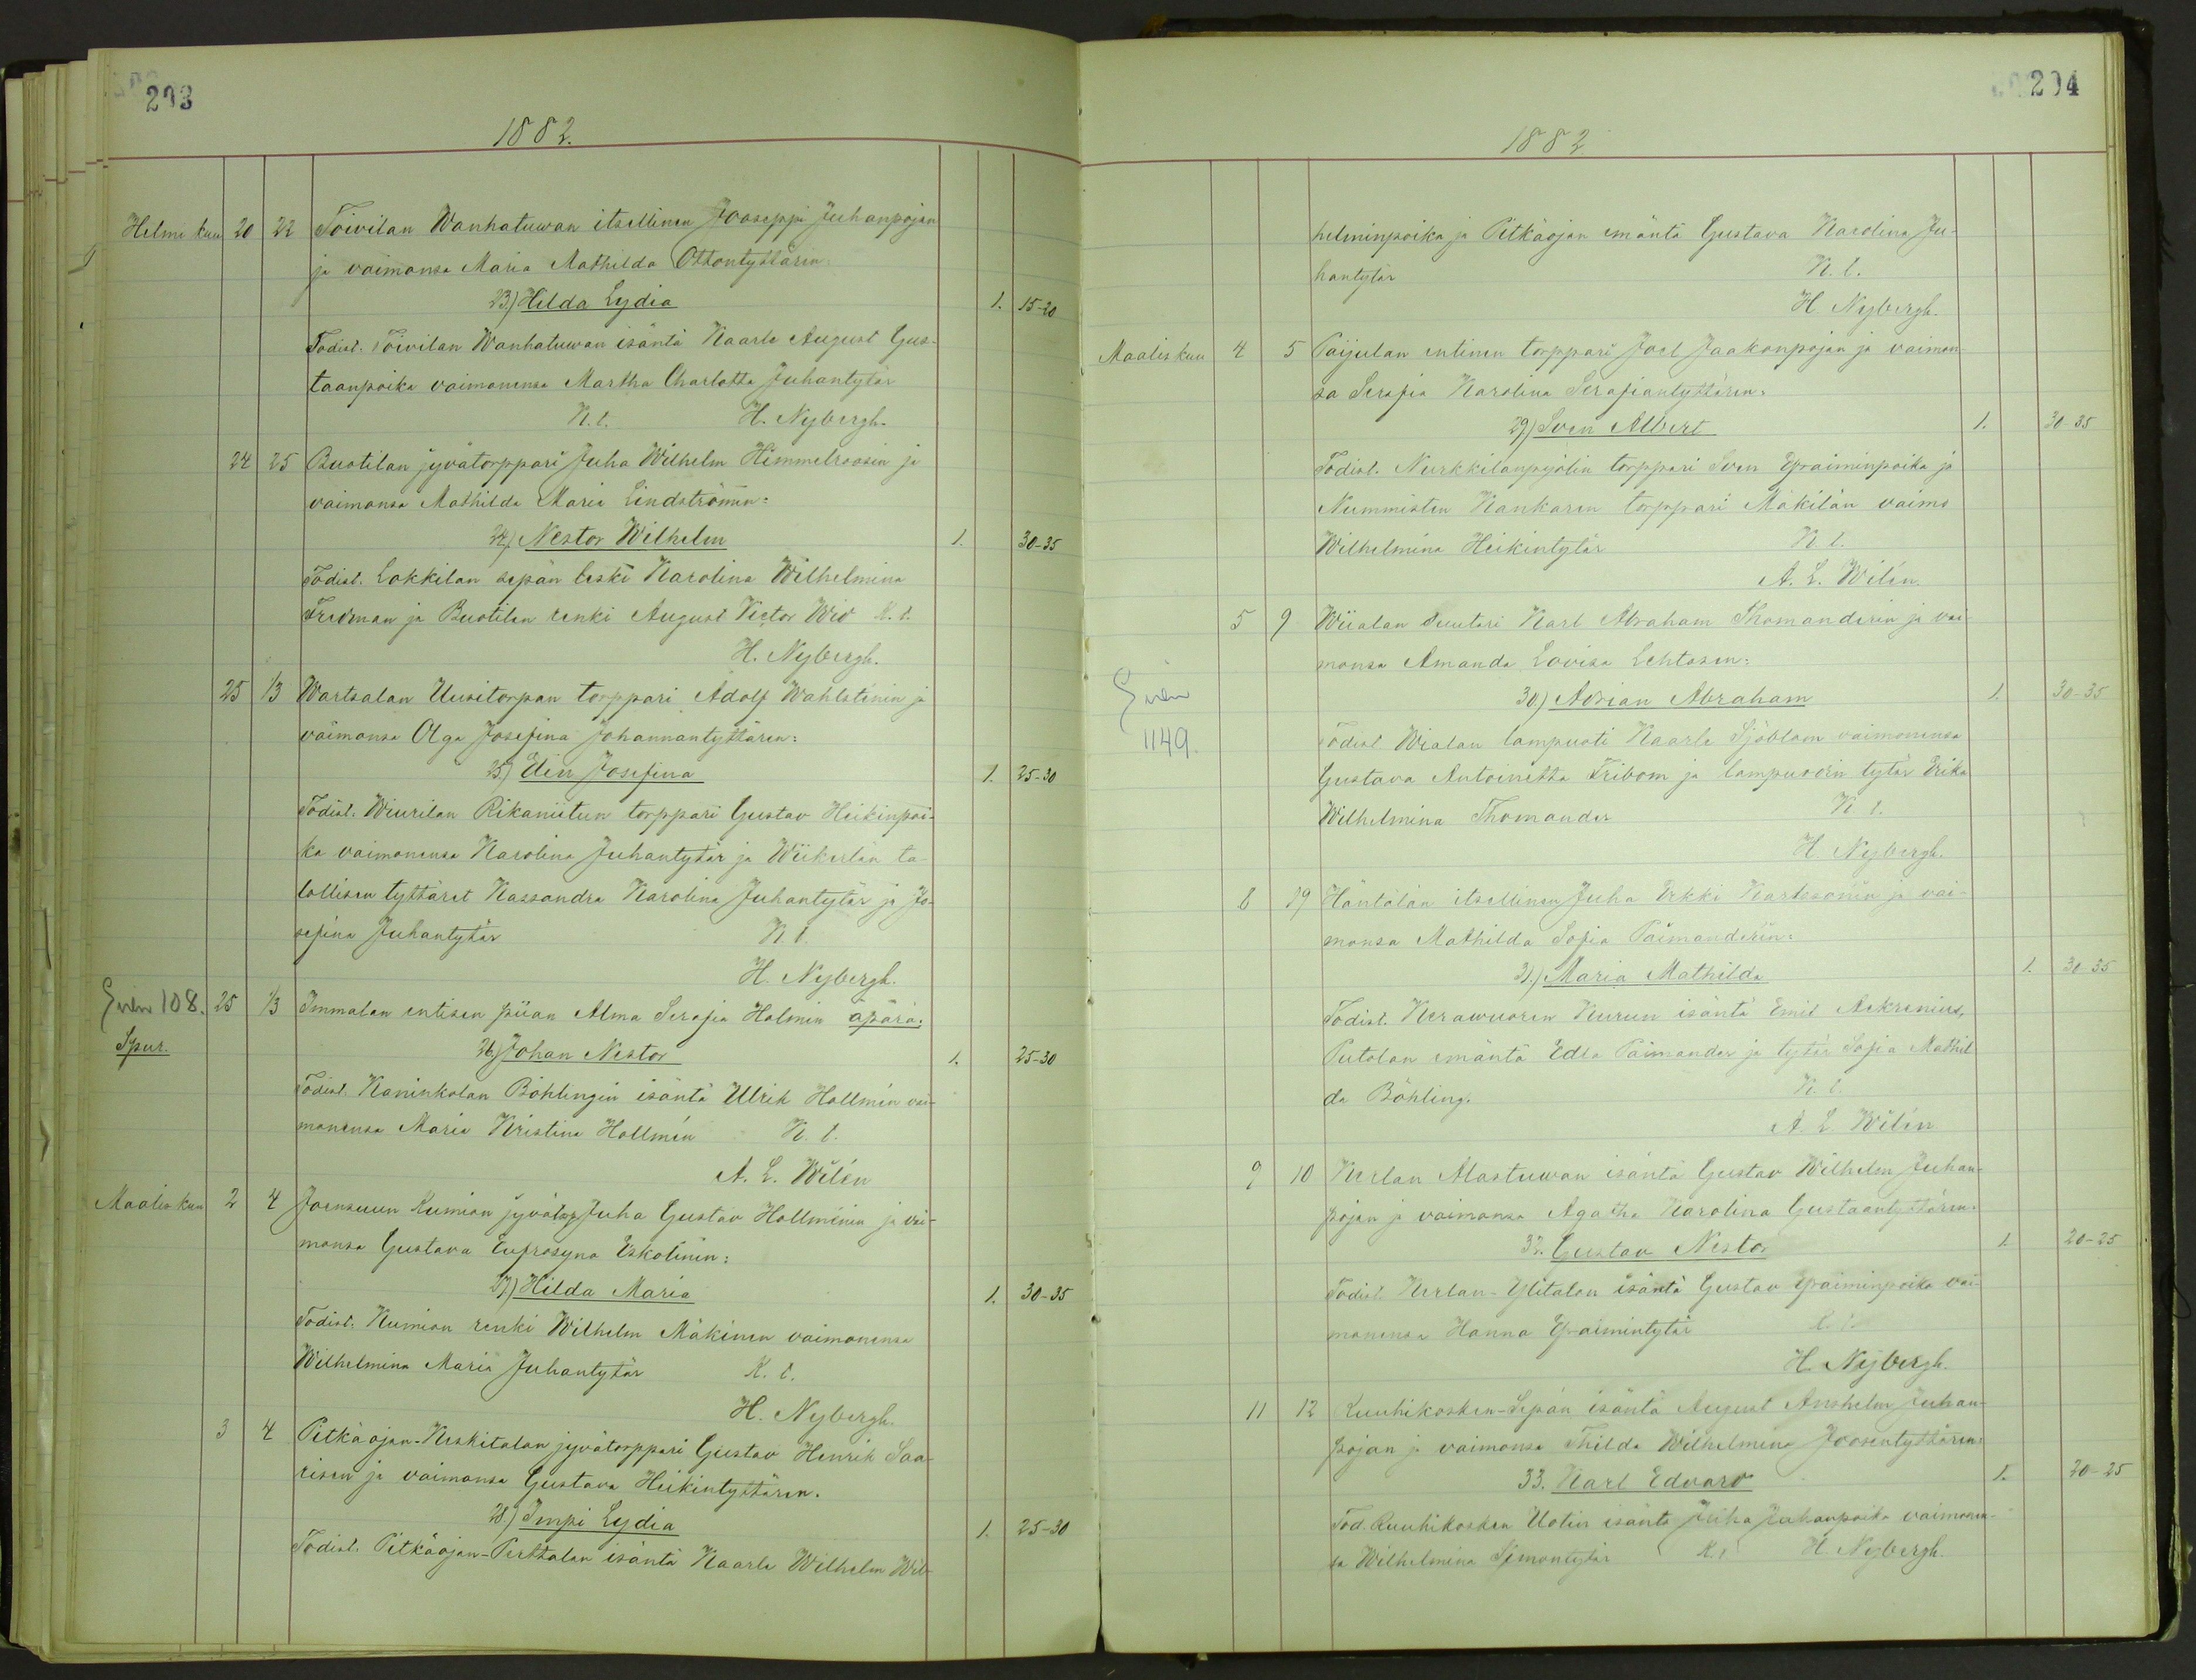 293
1882.
Helmikuu 20 22 Toivilan Wanhatuwan itsellinen Jooseppi Juhanpojan
ja vaimonsa Maria Mathilda Ottontyttären:
23.) Hilda Lydia 1. 15-20
Todist. Toivilan Wanhatuwan isäntä Kaarle August Gus-
taanpoika vaimonensa Martha Charlotta Juhantytär
K. t. H. Nybergh.
24 25 Buotilan jyvätorppari Juha Wilhelm Himmelroosin ja
vaimonsa Mathilda Maria Lindströmin:
24.) Nestor Wilhelm 1. 30-35
Todist. Lokkilan sepän leski Karolina Wilhelmina
Fredman ja Buotilan renki August Victor Wid K. t.
H. Nybergh.
25 1/3 Wartsalan Uusitorpan torppari Adolf Wahlsténin ja
vaimonsa Olga Josefina Johannantyttären:
25.) Elin Josefina 1. 25-30
Todist. Wiurilan Rikaniitun torppari Gustav Heikinpoi-
ka vaimonensa Karolina Juhantytär ja Wiikerlän ta-
lollisen tyttäret Kassandra Karolina Juhantytär ja Jo-
sefina Juhantytär K. t.
H. Nybergh.
108. 25 1/3 Immalan entisen piian Alma Serafia Holmin äpärä:
Spur. 26.) Johan Nestor 1. 25-30
Todist. Kaninkolan Böhlingin isäntä Ulrik Hollmén vai-
monensa Maria Kristina Hollmén K. t.
A. L. Wilén
Maaliskuu 2 4 Joensuun Kumion jyvätorp Juha Gustav Hollménin ja vai-
monsa Gustava Eufrosyna Eskolinin:
27.) Hilda Maria 1. 30-35
Todist. Kumion renki Wilhelm Mäkinen vaimonensa
Wilhelmina Maria Juhantytär K. t.
H. Nybergh.
3 4 Pitkäojan-Keskitalon jyvätorppari Gustav Henrik Saa-
risen ja vaimonsa Gustava Heikintyttären.
28.) Impi Lydia 1. 25-30
Todist. Pitkäojan-Perttalan isäntä Kaarle Wilhelm Wil-
294
1882
helminpoika ja Pitkäojan emäntä Gustava Karolina Ju-
hantytär K. t.
H. Nybergh.
Maaliskuu 4 5 Paijulan entinen torppari Joel Jaakonpojan ja vaimon
sa Serafia Karolina Serafiantyttären:
29.) Sven Albert 1. 30-35
Todist. Nurkkilanpyölin torppari Sven Epraiminpoika ja
Nummisten Kankaren torppari Mäkilän vaimo
Wilhelmina Heikintytär K. t.
A. L. Wilén.
5 9 Wiialan suutari Karl Abraham Thomanderin ja vai
monsa Amanda Lovisa Lehtosen:
1149. 30.) Adrian Abraham 1. 30-35
Todist Wialan lampuoti Kaarle Sjöblom vaimonensa
Gustava Antoinetta Fribom ja lampuodin tytär Erika
Wilhelmina Thomander K. t.
H. Nybergh.
8 19 Häntälän itsellinen Juha Erkki Karlssonin ja vai-
monsa Mathilda Sofia Paimanderin:
31.) Maria Mathilda 1. 30-35
Todist. Kerawuoren Kurun isäntä Emil Askrenius,
Putolan emäntä Edla Paimander ja tytär Sofia Mathil
da Böhling. K. t.
A. L. Wilén
9 10 Kerlan Alastuwan isäntä Gustav Wilhelm Juhan-
pojan ja vaimonsa Agatha Karolina Gustaantyttären:
32. Gustav Nestor 1. 20-25
Todist. Kerlan-Ylitalon isäntä Gustav Epraiminpoika vai-
monensa Hanna Epraimintytär K. t.
H. Nybergh.
11 12 Kuuhikosken-Sepän isäntä August Anshelm Juhan-
pojan ja vaimonsa Thilda Wilhelmina Joosentyttären:
33. Karl Edvard 1. 20-25
Tod. Kuuhikosken Uotin isäntä Juha Juhanpoika vaimonen-
sa Wilhelmina Simontytär K. t. H. Nybergh.